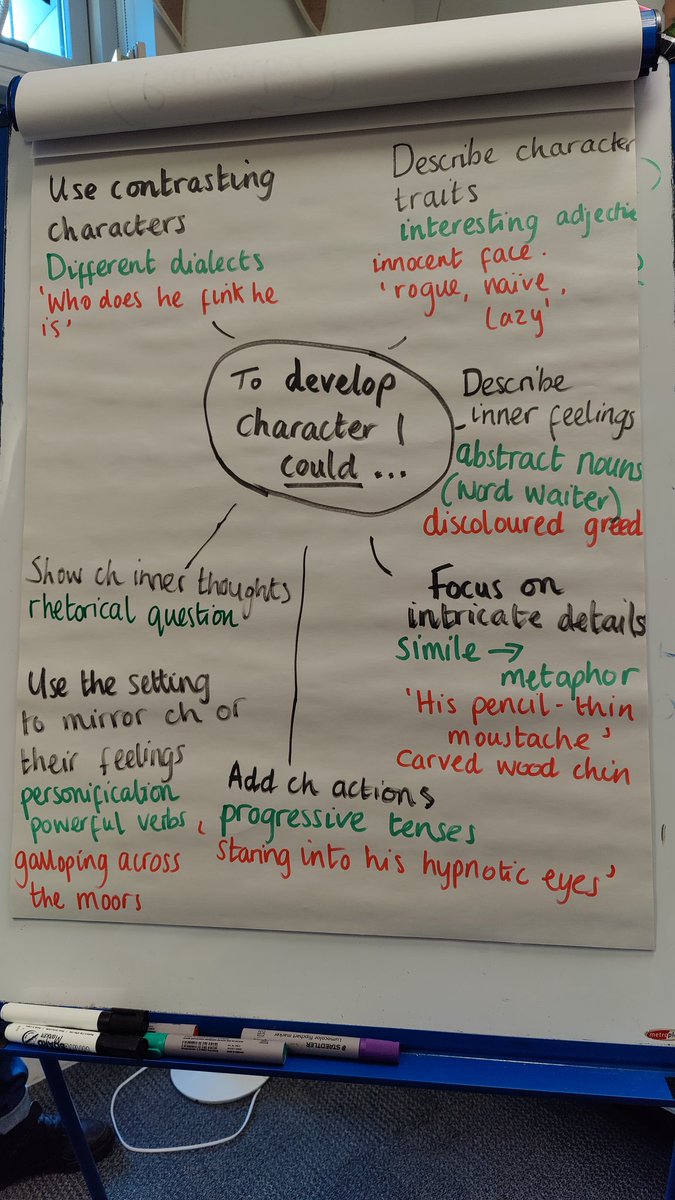 Use contrasting
characters
Different dialects
'Who does he fink he
is'
Describe character
traits
interesting adjectiv
innocent face.
'rogue, naïve,
lazy'
To develop
character I
could ...
Describe
inner feelings
abstract nouns
(Word Waiter)
discoloured greed
Show ch inner thoughts
rhetorical question
Focus on
intricate details
simile →
metaphor
'His pencil-thin
moustache'
carved wood chin
Use the setting
to mirror ch or
their feelings
personification
powerful verbs
galloping across
the moors
Add ch actions
progressive tenses
'staring into his hypnotic eyes'
STAEDTLER
Lumocolor flipchart marker